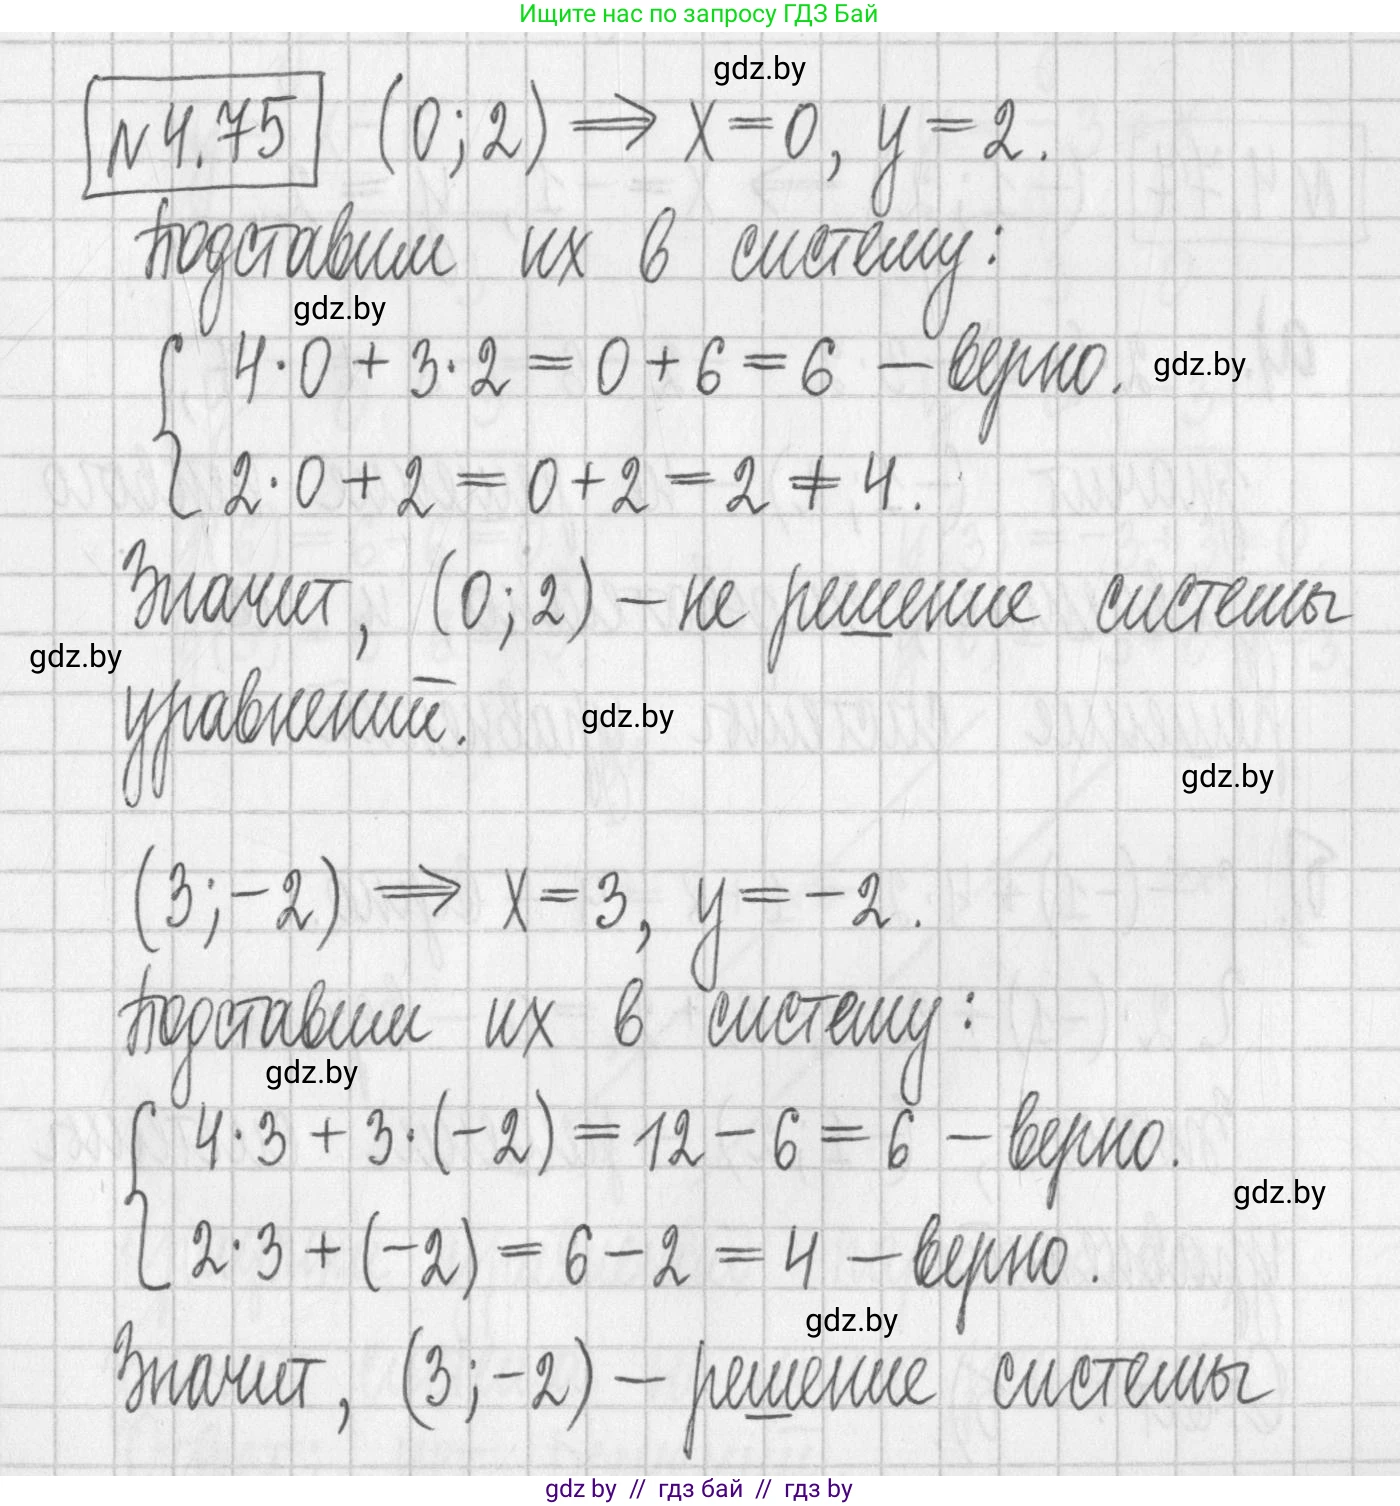 Ищите нас по запросу ГДЗ Бай
gdz.by
№4.75 (0;2) ⟹ x=0, y=2.
Подставим их в систему:
gdz.by
4·0+3·2=0+6=6 – верно.
gdz.by
2·0+2=0+2=2≠4.
Значит, (0;2) – не решение системы
gdz.by
уравнений.
gdz.by
gdz.by
(3;-2) ⟹ x=3, y=-2.
Подставим их в систему:
gdz.by
4·3+3·(-2)=12-6=6 – верно.
gdz.by
2·3+(-2)=6-2=4 – верно.
gdz.by
Значит, (3;-2) – решение системы
gdz by // гдз бай // гдз by